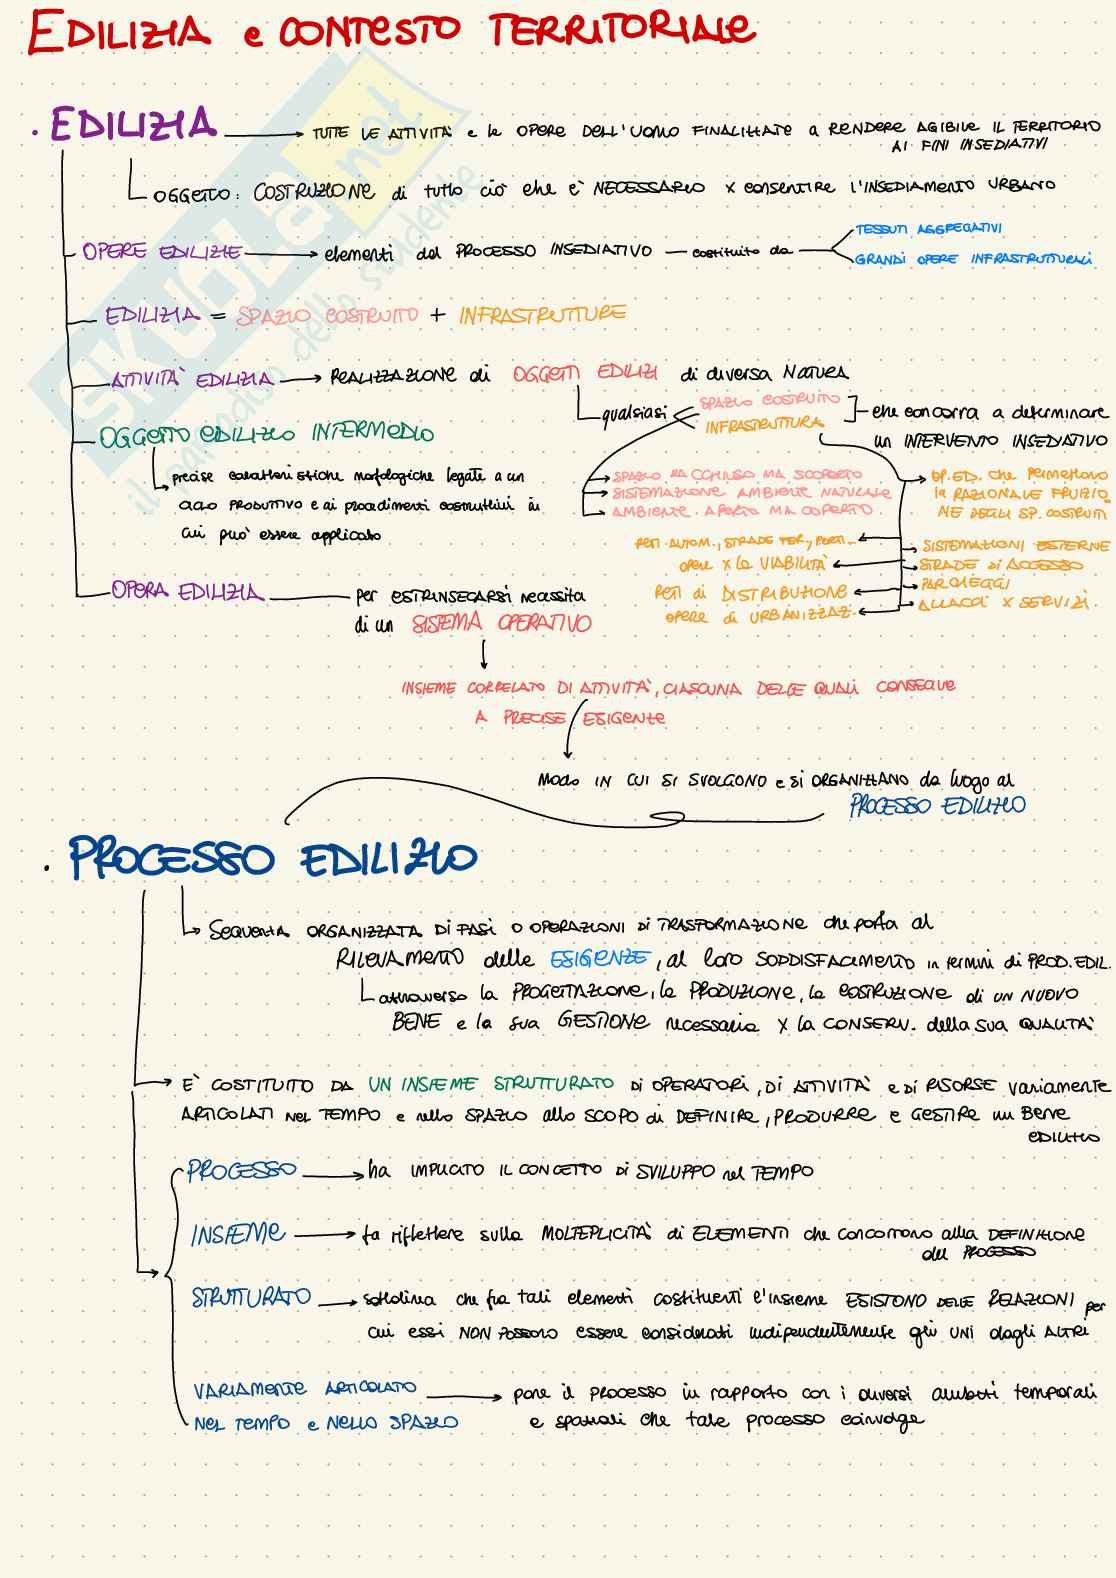 EDILIZIA e CONTESTO TERRITORIALE
. EDILIZIA → TUTTE LE ATTIVITÀ e le OPERE DELL'UOMO FINALIZZATE a RENDERE AGIBILE IL TERRITORIO
AI FINI INSEDIATIVI
OGGETTO: COSTRUZIONE di tutto ciò che è NECESSARIO x consentire l'INSEDIAMENTO URBANO
OPERE EDILIZIE → elementi del PROCESSO INSEDIATIVO — costituito da
TESSUTI AGGREGATIVI
GRANDI OPERE INFRASTRUTTURALI
EDILIZIA = SPAZIO COSTRUITO + INFRASTRUTTURE
ATTIVITÀ EDILIZIA → REALIZZAZIONE di OGGETTI EDILIZI di diversa NATURA
qualsiasi
SPAZIO COSTRUITO
INFRASTRUTTURA
che concorra a determinare
un INTERVENTO INSEDIATIVO
OGGETTO EDILIZIO INTERMEDIO
precise caratteristiche morfologiche legate a un
ciclo PRODUTTIVO e ai procedimenti costruttivi in
cui può essere applicato
SPAZIO RACCHIUSO MA SCOPERTO
SISTEMAZIONE AMBIENTE NATURALE
AMBIENTE APERTO MA COPERTO.
OP.ED. che permettono
la RAZIONALE FRUIZIO
NE DEGLI SP. COSTRUITI
RETI AUTOM., STRADE FER., PORTI...
opere x la VIABILITÀ
RETI di DISTRIBUZIONE
opere di URBANIZZAZ.
SISTEMAZIONI ESTERNE
STRADE di ACCESSO
PARCHEGGI
ALLACCI x SERVIZI.
OPERA EDILIZIA → per ESTRINSECARSI necessita
di un SISTEMA OPERATIVO
INSIEME CORRELATO DI ATTIVITÀ, CIASCUNA DELLE QUALI CONSEGUE
A PRECISE ESIGENZE
Modo IN CUI SI SVOLGONO e si ORGANIZZANO da luogo al
PROCESSO EDILIZIO
. PROCESSO EDILIZIO
SEQUENZA ORGANIZZATA DI FASI O OPERAZIONI DI TRASFORMAZIONE che porta al
RILEVAMENTO delle ESIGENZE, al loro SODDISFACIMENTO in termini di PROD. EDIL.
attraverso la PROGETTAZIONE, la PRODUZIONE, la COSTRUZIONE di un NUOVO
BENE e la sua GESTIONE necessaria x la CONSERV. della sua QUALITÀ
È COSTITUITO DA UN INSIEME STRUTTURATO DI OPERATORI, DI ATTIVITÀ e DI RISORSE variamente
ARTICOLATI nel TEMPO e nello SPAZIO allo SCOPO di DEFINIRE, PRODURRE e GESTIRE un Bene
EDILIZIO
PROCESSO → ha IMPLICATO IL CONCETTO DI SVILUPPO nel TEMPO
INSIEME → fa riflettere sulla MOLTEPLICITÀ di ELEMENTI che concorrono alla DEFINIZIONE
del PROCESSO
STRUTTURATO → sottolinea che fra tali elementi costituenti l'insieme ESISTONO DELLE RELAZIONI per
cui essi NON POSSONO essere considerati indipendentemente gli UNI dagli ALTRI
VARIAMENTE ARTICOLATO → pone il PROCESSO in rapporto con i diversi ambiti temporali
NEL TEMPO e NELLO SPAZIO
e spaziali che tale processo coinvolge
SKUOLA.net
il paradiso dello studente